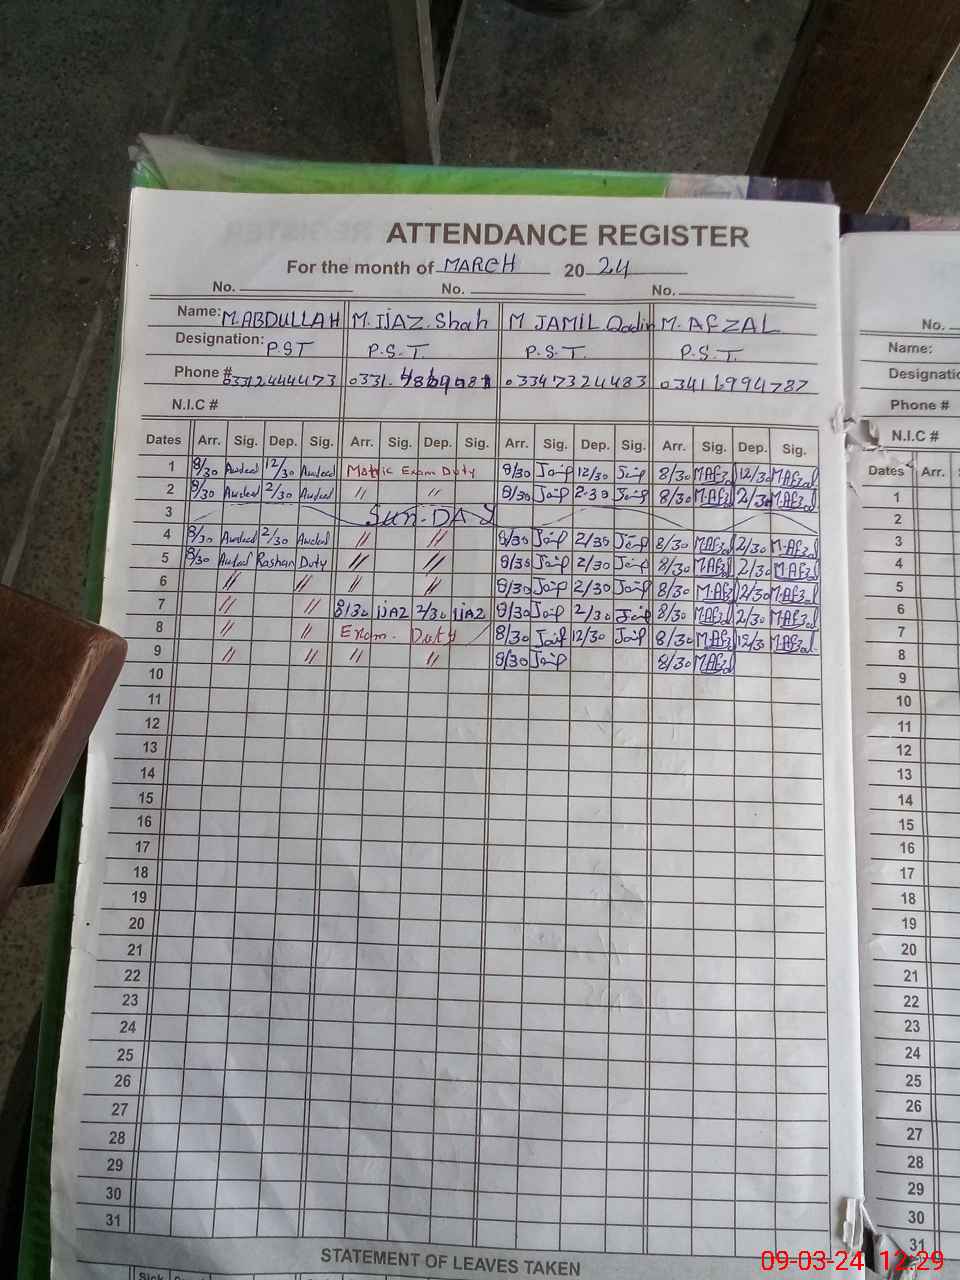 ATTENDANCE REGISTER
For the month of MARCH 2024
No. No. No.
Name: M.ABDULLAH M. IJAZ. Shah M JAMIL Qadir M. AFZAL
Designation: P.ST P.S.T. P.S.T. P.S.T.
Phone # 03312444473 0331. 03347324483 03416994787
N.I.C #
Dates Arr. Sig. Dep. Sig. Arr. Sig. Dep. Sig. Arr. Sig. Dep. Sig. Arr. Sig. Dep. Sig.
1 8/30 12/30 Matric Exam Duty 8/30 12/30 8/30 M.Afzal 12/30 M.Afzal
2 8/30 2/30 // // 8/30 2-30 8/30 M.Afzal 2/30 M.Afzal
3 SUN-DAY
4 8/30 2/30 // // 8/30 2/30 8/30 M.Afzal 2/30 M.Afzal
5 8/30 Rashan Duty // // 8/30 2/30 8/30 M.Afzal 2/30 M.Afzal
6 // // // // 8/30 2/30 8/30 M.Afzal 2/30 M.Afzal
7 // // 8/30 IJAZ 2/30 IJAZ 8/30 2/30 8/30 M.Afzal 2/30 M.Afzal
8 // // Exam. Duty 8/30 12/30 8/30 M.Afzal 12/30 M.Afzal
9 // // // // 8/30 8/30 M.Afzal
10
11
12
13
14
15
16
17
18
19
20
21
22
23
24
25
26
27
28
29
30
31
STATEMENT OF LEAVES TAKEN
Sick
No.
Name:
Phone #
N.I.C #
Dates Arr.
1
2
3
4
5
6
7
8
9
10
11
12
13
14
15
16
17
18
19
20
21
22
23
24
25
26
27
28
29
30
31
09-03-24 12:29